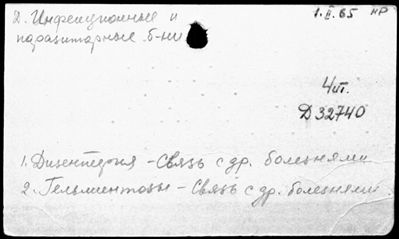 2. Инфекционные и
паразитарные б-ни
1.II.65 нр
4 экз.
Д 32740
1. Дизентерия – Связь с др. болезнями
2. Гельминтозы – Связь с др. болезнями